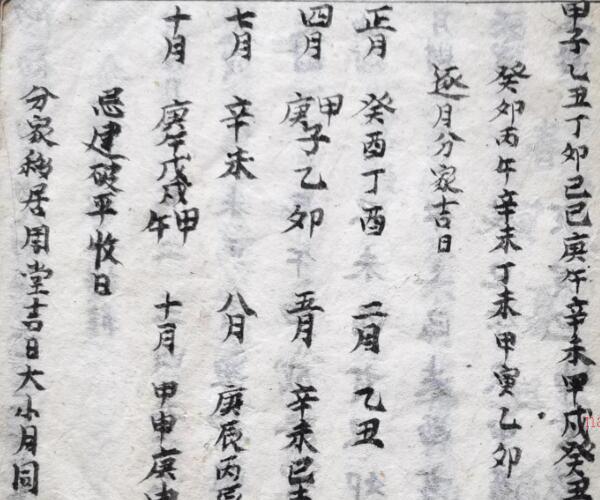 甲子乙丑丁卯己巳庚午辛未甲戌癸丑
癸卯丙午辛未丁未甲寅乙卯
逐月分家吉日
正月 癸酉丁酉 二月 乙丑
四月 甲庚子乙卯 五月 辛未己
七月 辛未 八月 庚辰丙辰
十月 庚午戊戌甲午 十一月 甲申庚申
忌建破平收日
分家移居周堂吉日大小月同